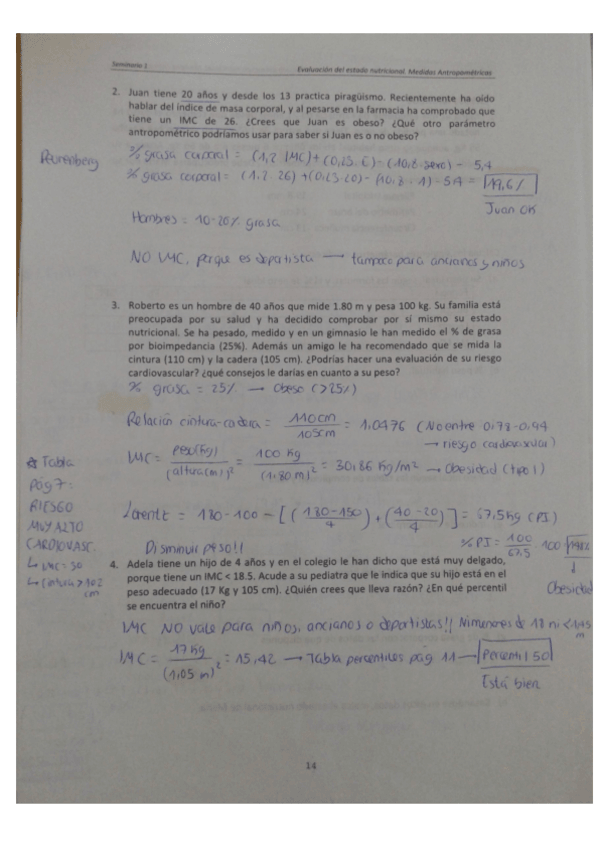 Seminario 1
Evaluación del estado nutricional. Medidas Antropométricas
2. Juan tiene 20 años y desde los 13 practica piragüismo. Recientemente ha oído
hablar del índice de masa corporal, y al pesarse en la farmacia ha comprobado que
tiene un IMC de 26. ¿Crees que Juan es obeso? ¿Qué otro parámetro
antropométrico podríamos usar para saber si Juan es o no obeso?
Deurenberg
% grasa corporal = (1,2 · IMC) + (0,23 · E) - (10,8 · sexo) - 5,4
% grasa corporal = (1,2 · 26) + (0,23 · 20) - (10,8 · 1) - 5,4 = 19,6%
Juan OK
Hombres = 10-20% grasa
NO IMC, porque es deportista → tampoco para ancianos y niños
3. Roberto es un hombre de 40 años que mide 1.80 m y pesa 100 kg. Su familia está
preocupada por su salud y ha decidido comprobar por sí mismo su estado
nutricional. Se ha pesado, medido y en un gimnasio le han medido el % de grasa
por bioimpedancia (25%). Además un amigo le ha recomendado que se mida la
cintura (110 cm) y la cadera (105 cm). ¿Podrías hacer una evaluación de su riesgo
cardiovascular? ¿qué consejos le darías en cuanto a su peso?
% grasa = 25% → Obeso (>25%)
Relación cintura-cadera = 110cm / 105cm = 1,0476 (No entre 0,78-0,94
→ riesgo cardiovascular)
IMC = peso(Kg) / (altura(m))² = 100 Kg / (1,80 m)² = 30,86 Kg/m² → Obesidad (tipo I)
☆ Tabla
pág 7:
RIESGO
MUY ALTO
CARDIOVASC.
↳ IMC = 30
↳ cintura > 102
cm
Lorentz = 180-100 - [(180-150 / 4) + (40-20 / 4)] = 67,5Kg (PI)
% PI = 100 / 67,5 · 100 = 148%
↓
Obesidad
Disminuir peso!!
4. Adela tiene un hijo de 4 años y en el colegio le han dicho que está muy delgado,
porque tiene un IMC < 18.5. Acude a su pediatra que le indica que su hijo está en el
peso adecuado (17 Kg y 105 cm). ¿Quién crees que lleva razón? ¿En qué percentil
se encuentra el niño?
IMC NO vale para niños, ancianos o deportistas!! Ni menores de 18 ni <1,45
m
IMC = 17 Kg / (1,05 m)² = 15,42 → Tabla percentiles pág 11 → Percentil 50
Está bien
14